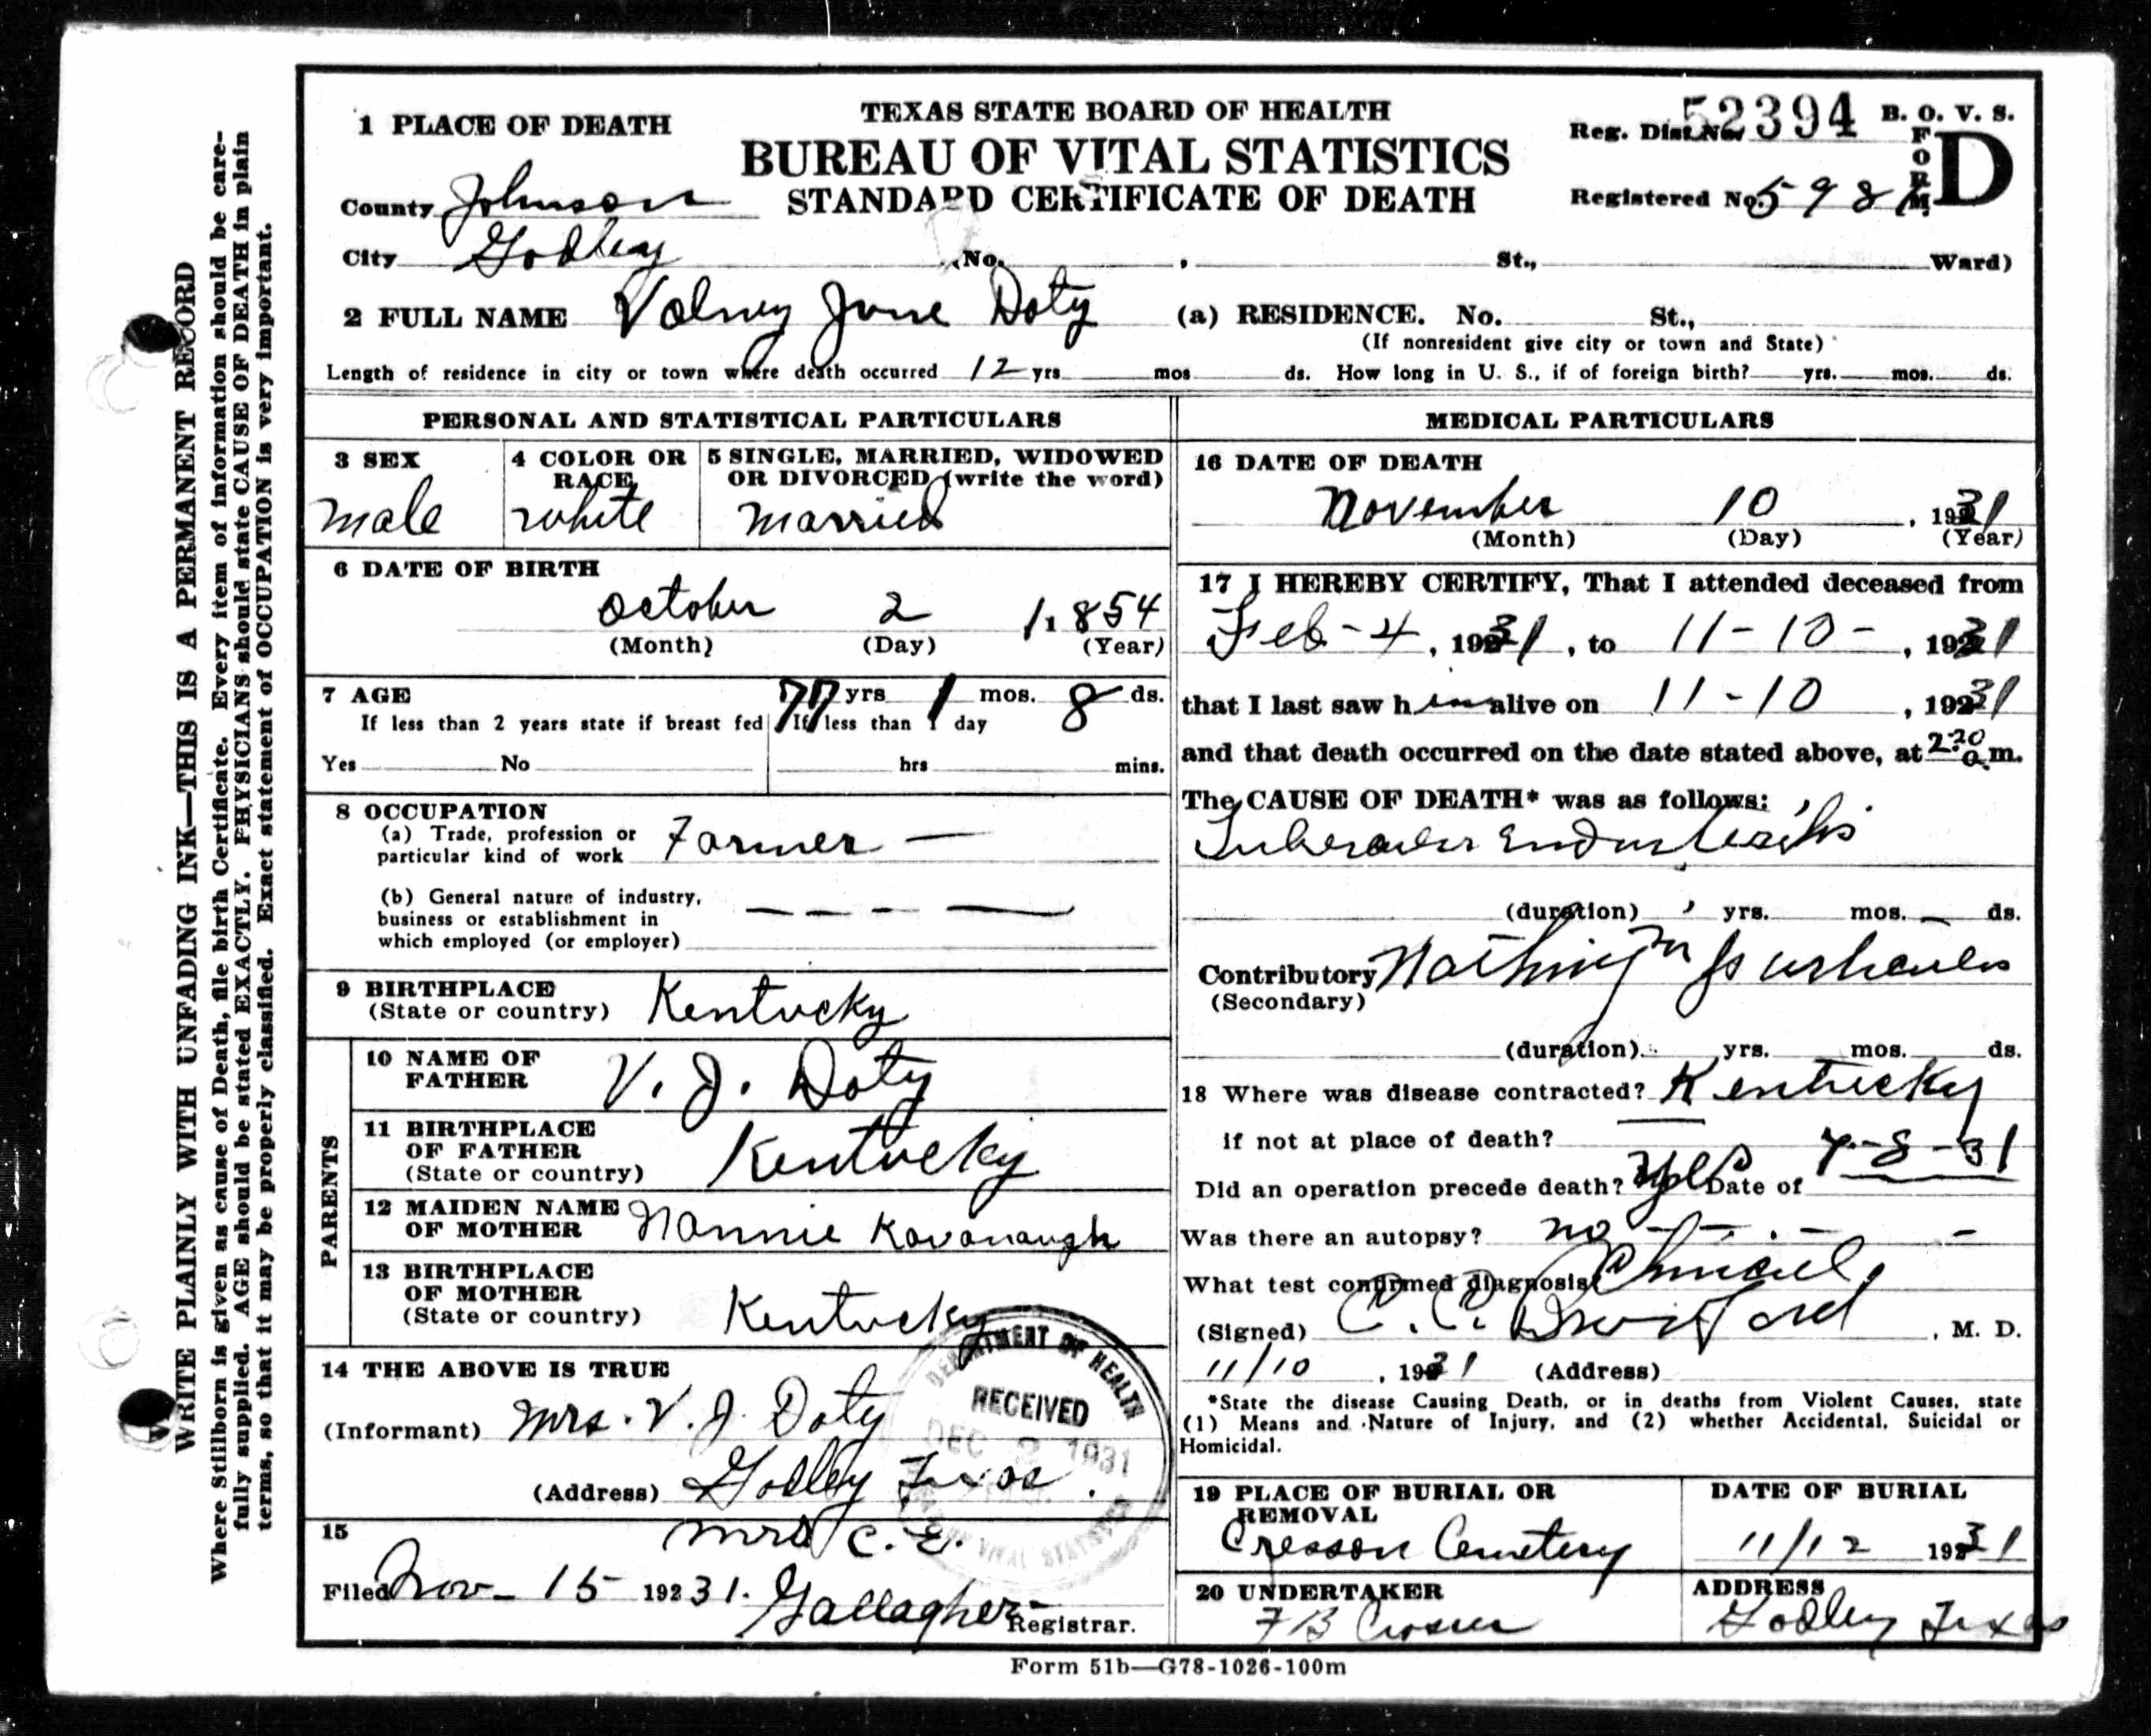 WRITE PLAINLY WITH UNFADING INK—THIS IS A PERMANENT RECORD
Where Stillborn is given as cause of Death, file birth Certificate. Every item of information should be care-
fully supplied. AGE should be stated EXACTLY. PHYSICIANS should state CAUSE OF DEATH in plain
terms, so that it may be properly classified. Exact statement of OCCUPATION is very important.
TEXAS STATE BOARD OF HEALTH
BUREAU OF VITAL STATISTICS
STANDARD CERTIFICATE OF DEATH
Reg. Dist. No. 52394 B. O. V. S.
FORM D
Registered No. 598
1 PLACE OF DEATH
County Johnson
City Godley No. , St., Ward)
2 FULL NAME Volney June Doty (a) RESIDENCE. No. St.,
(If nonresident give city or town and State)
Length of residence in city or town where death occurred 12 yrs mos ds. How long in U. S., if of foreign birth? yrs. mos. ds.
PERSONAL AND STATISTICAL PARTICULARS
3 SEX
male
4 COLOR OR RACE
white
5 SINGLE, MARRIED, WIDOWED
OR DIVORCED (write the word)
married
6 DATE OF BIRTH
October 2 1854
(Month) (Day) (Year)
7 AGE 77 yrs 1 mos. 8 ds.
If less than 2 years state if breast fed If less than 1 day
Yes No hrs mins.
8 OCCUPATION
(a) Trade, profession or
particular kind of work Farmer —
(b) General nature of industry,
business or establishment in
which employed (or employer)
9 BIRTHPLACE
(State or country) Kentucky
PARENTS
10 NAME OF
FATHER V. J. Doty
11 BIRTHPLACE
OF FATHER
(State or country) Kentucky
12 MAIDEN NAME
OF MOTHER Nannie Kavanaugh
13 BIRTHPLACE
OF MOTHER
(State or country) Kentucky
14 THE ABOVE IS TRUE
(Informant) Mrs. V. J. Doty
(Address) Godley Texas.
DEPARTMENT OF HEALTH
RECEIVED
DEC 2 1931
VITAL STATISTICS
15
Mrs C. E.
Filed Nov - 15 19231. Gallagher
Registrar.
MEDICAL PARTICULARS
16 DATE OF DEATH
November 10, 1931
(Month) (Day) (Year)
17 I HEREBY CERTIFY, That I attended deceased from
Feb - 4, 1931, to 11-10-, 1931
that I last saw him alive on 11-10, 1931
and that death occurred on the date stated above, at 2:20 a m.
The CAUSE OF DEATH* was as follows:
(duration) yrs. mos. ds.
Contributory Nothing in particular
(Secondary)
(duration) yrs. mos. ds.
18 Where was disease contracted? Kentucky
if not at place of death?
Did an operation precede death? yes Date of 4-8-31
Was there an autopsy? no
What test confirmed diagnosis? Clinical
(Signed) C. C. , M. D.
11/10, 1931 (Address)
*State the disease Causing Death, or in deaths from Violent Causes, state
(1) Means and Nature of Injury, and (2) whether Accidental, Suicidal or
Homicidal.
19 PLACE OF BURIAL OR
REMOVAL
Cresson Cemetery
DATE OF BURIAL
11/12 1931
20 UNDERTAKER
F B Crosier
ADDRESS
Godley Texas
Form 51b—G78-1026-100m